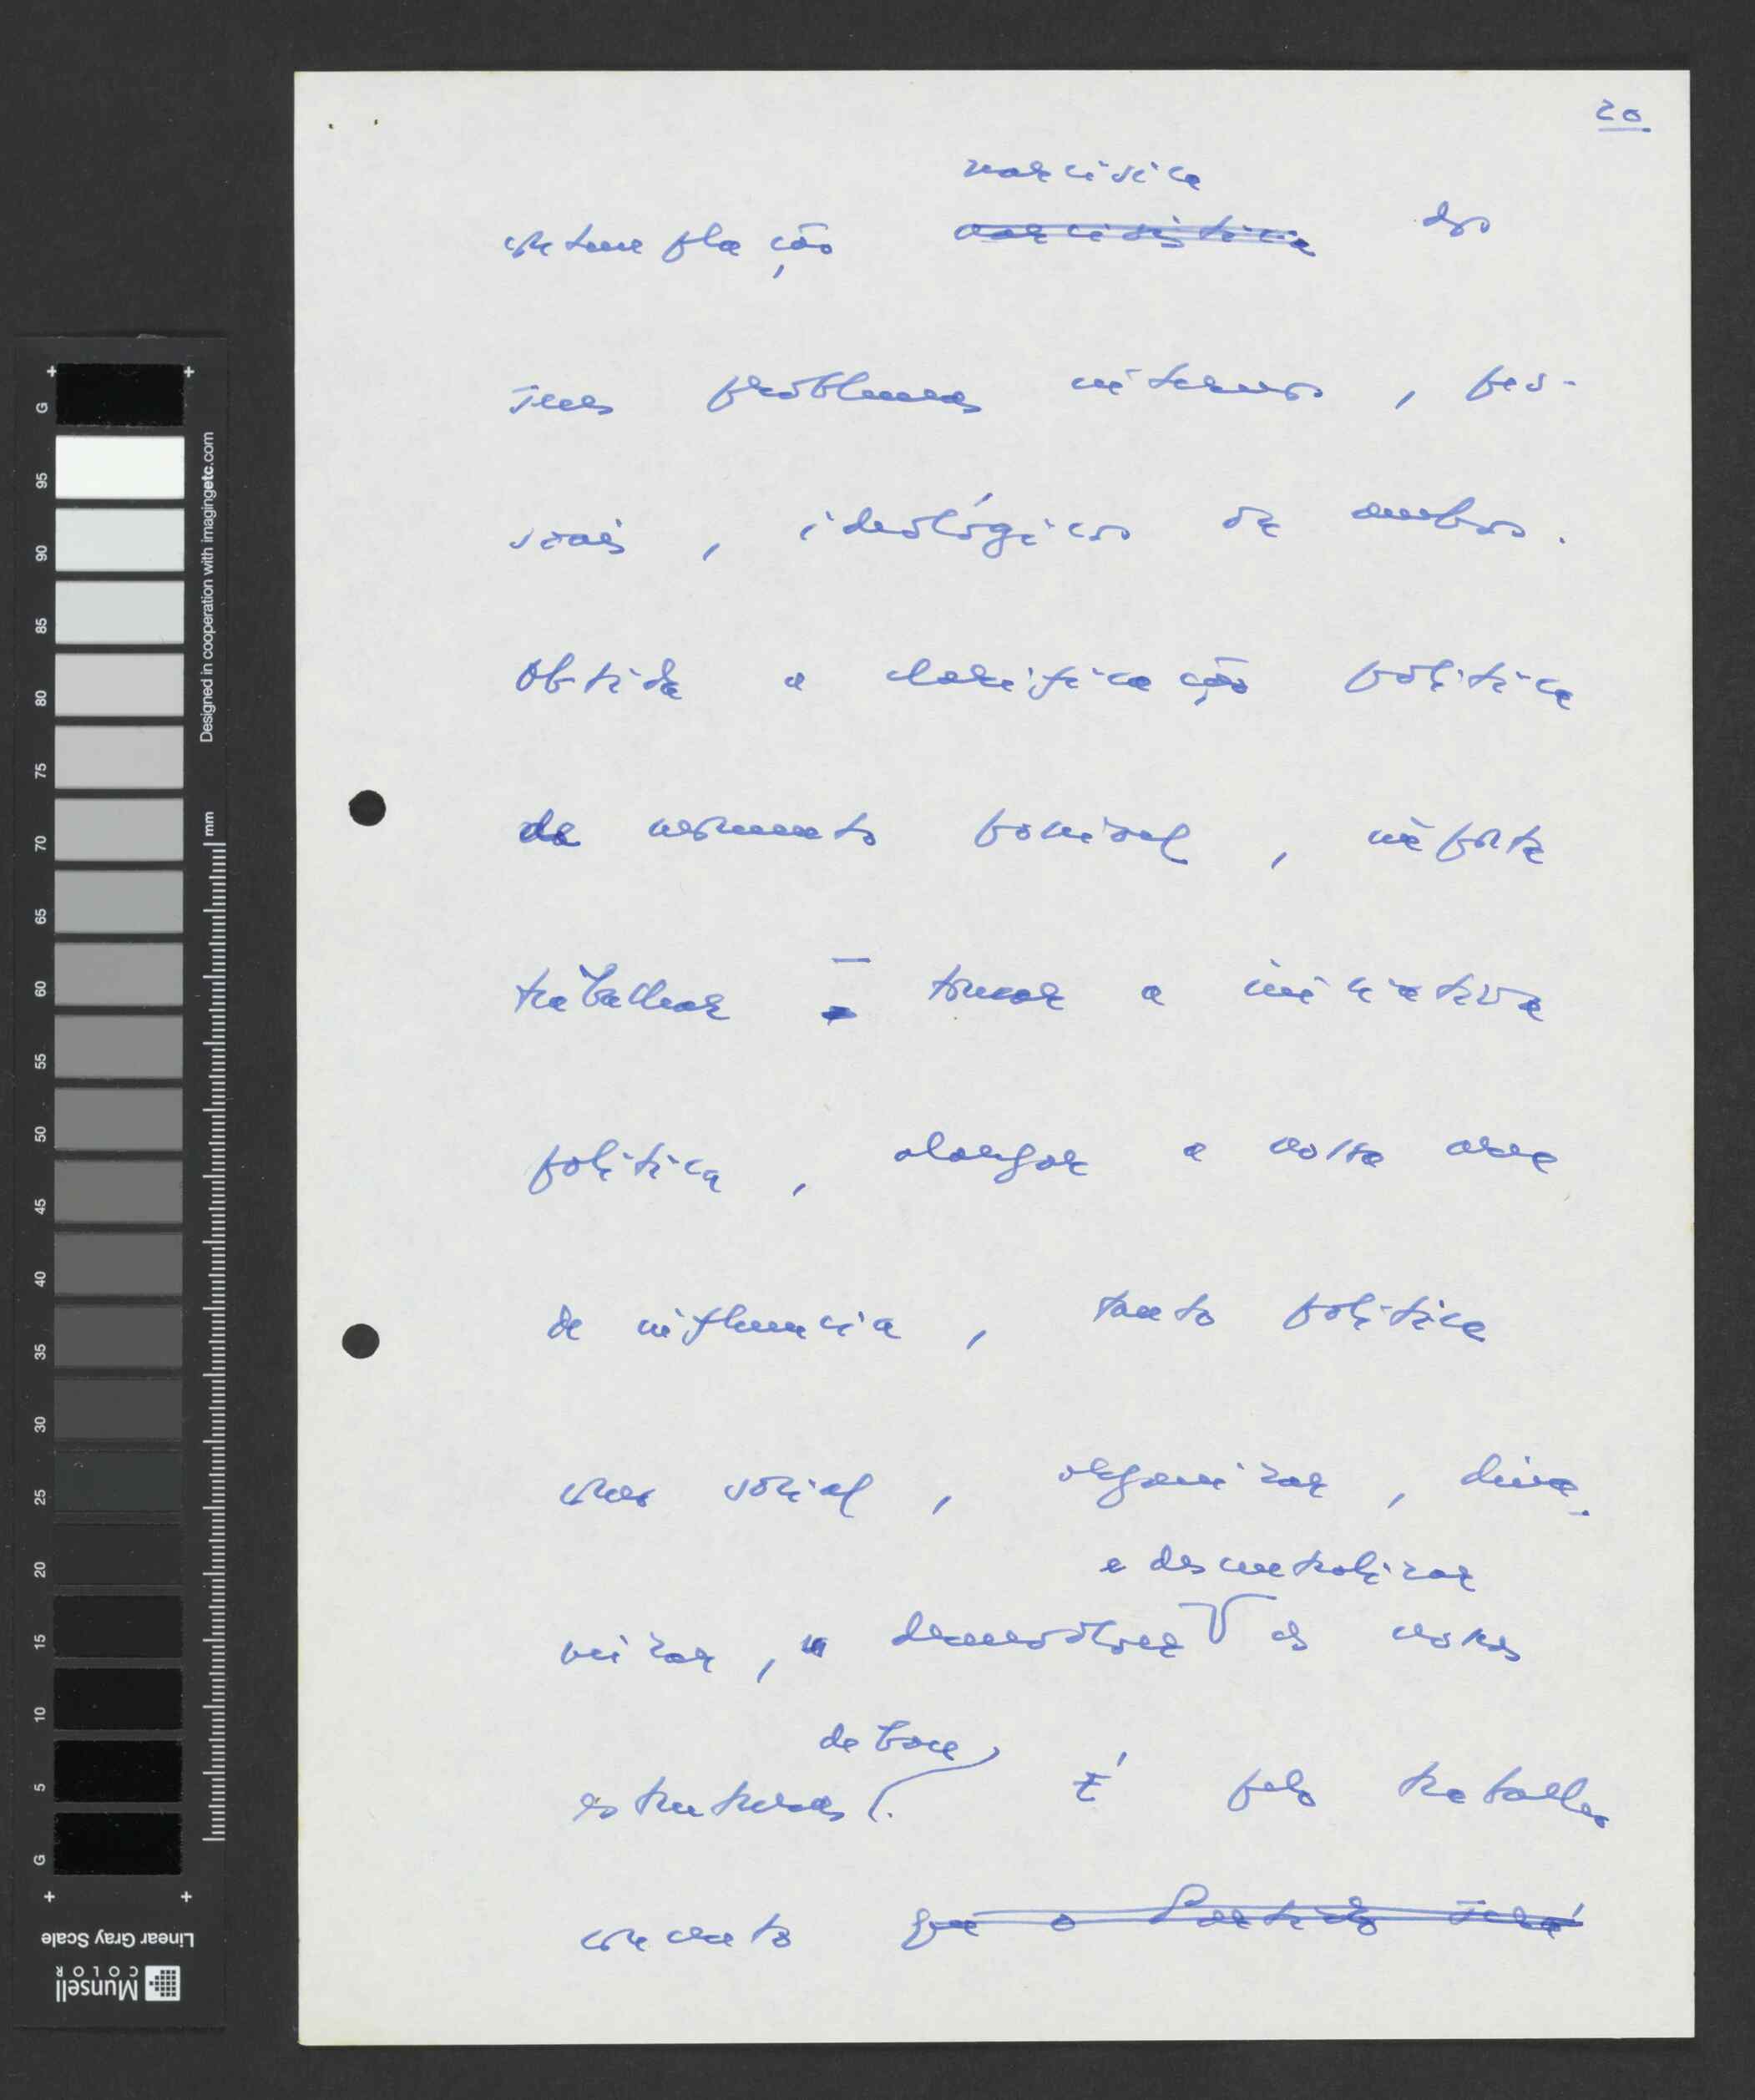 20
narcísica
contemplação ~~narcisística~~ dos
seus problemas internos, pes-
soais, ideológicos ou ambos.
Obtida a clarificação política
do momento possível, importa
trabalhar – tomar a iniciativa
política, alargar a nossa área
de influência, tanto política
como social, organizar, dina-
mizar, desenvolver as nossas
e descentralizar
estruturas.
de base
É pelo trabalho
concreto ~~que o Partido será~~
G 95 90 85 80 75 70 65 60 55 50 45 40 35 30 25 20 15 10 5 G
Designed in cooperation with imagingetc.com
70 mm
Linear Gray Scale
Munsell
COLOR